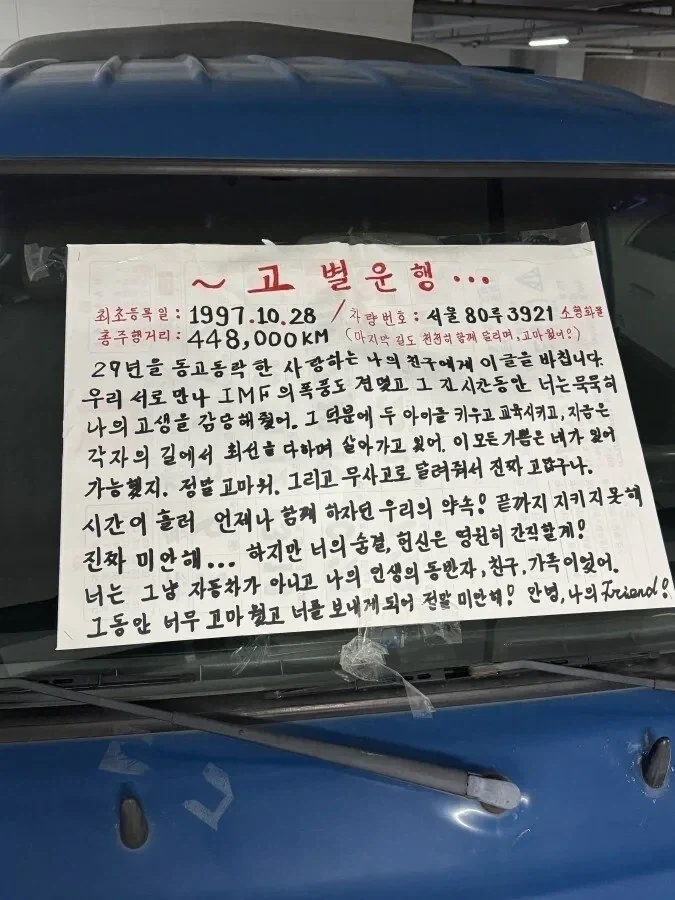 ~ 고 별 운 행 ...
최초등록일 : 1997.10.28 / 차량번호 : 서울80루3921 소형화물
총주행거리 : 448,000KM (마지막 길도 천천히 함께 달리며, 고마웠어!)
29년을 동고동락 한 사랑하는 나의 친구에게 이 글을 바칩니다.
우리 서로 만나 IMF의 폭풍도 견뎠고 그 긴 시간동안 너는 묵묵히
나의 고생을 감당해 줬어. 그 덕분에 두 아이를 키우고 교육시키고, 지금은
각자의 길에서 최선을 다하며 살아가고 있어. 이 모든 기쁨은 네가 있어
가능했지. 정말 고마워. 그리고 무사고로 달려줘서 진짜 고맙구나.
시간이 흘러 언제나 함께 하자던 우리의 약속! 끝까지 지키지 못해
진짜 미안해... 하지만 너의 숨결, 헌신은 영원히 간직할게!
너는 그냥 자동차가 아니고 나의 인생의 동반자, 친구, 가족이었어.
그동안 너무 고마웠고 너를 보내게 되어 정말 미안해! 안녕, 나의 Friend!